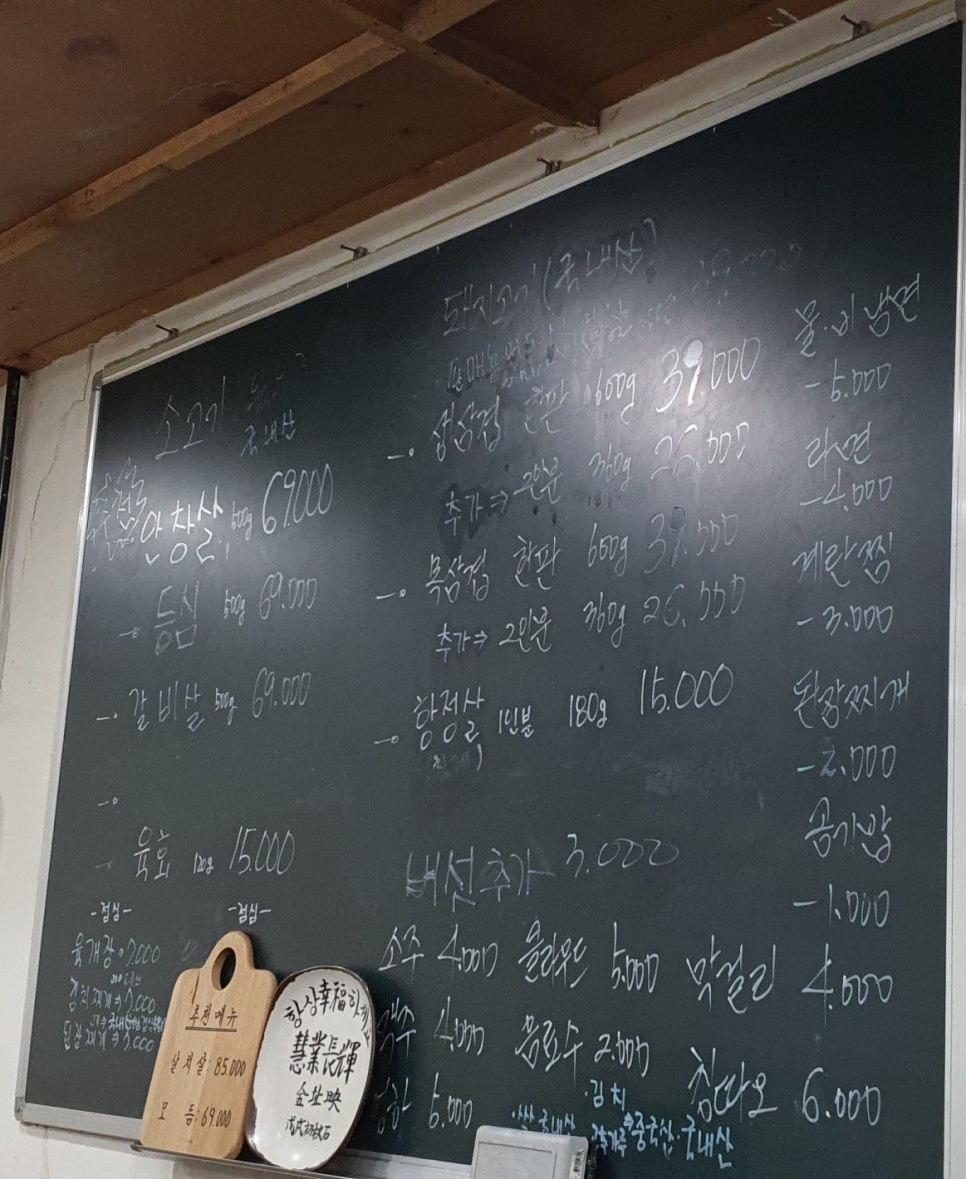 소고기
국내산
안창살 500g 69.000
등심 500g 69.000
갈비살 500g 69.000
육회 120g 15.000
-점심-
-점심-
육개장 7.000
김치찌개 7.000
된장찌개 7.000
돼지고기(국내산)
삼겹 한판 600g 39.000
추가⇒ 2인분 360g 26.000
목삼겹 한판 600g 39.000
추가⇒ 2인분 360g 26.000
항정살 1인분 180g 15.000
버섯추가 3.000
물·비냉면
-5.000
라면
-4.000
계란찜
-3.000
된장찌개
-2.000
공기밥
-1.000
소주 4.000
맥주 4.000
5.000
5.000
음료수 2.000
막걸리 4.000
칭따오 6.000
·쌀:국내산
·김치
고추가루⇒중국산·국내산
추천메뉴
살치살: 85.000
모듬: 69.000
항상幸福하세요
慧業長輝